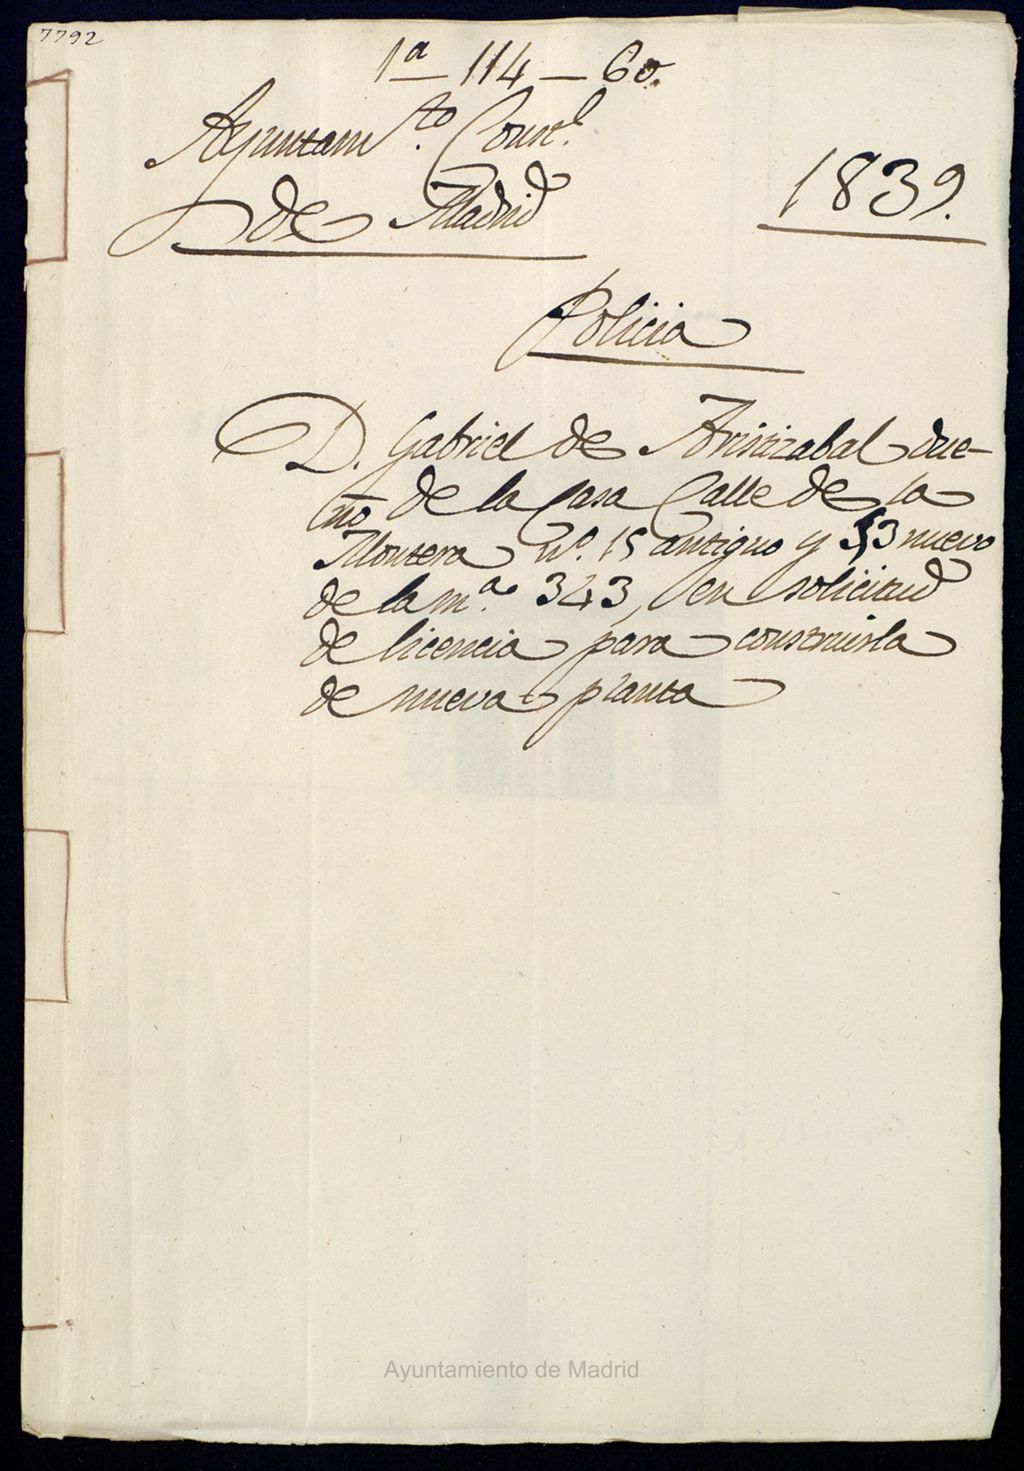 7792
1ª - 114 - 60.
Ayuntamto. Constl.
de Madrid
1839.
Policia
D. Gabriel de Aristizabal due-
ño de la Casa Calle de la
Montera nº. 15 antiguo y 53 nuevo
de la mª. 343, en solicitud
de licencia para construirla
de nueva planta
Ayuntamiento de Madrid